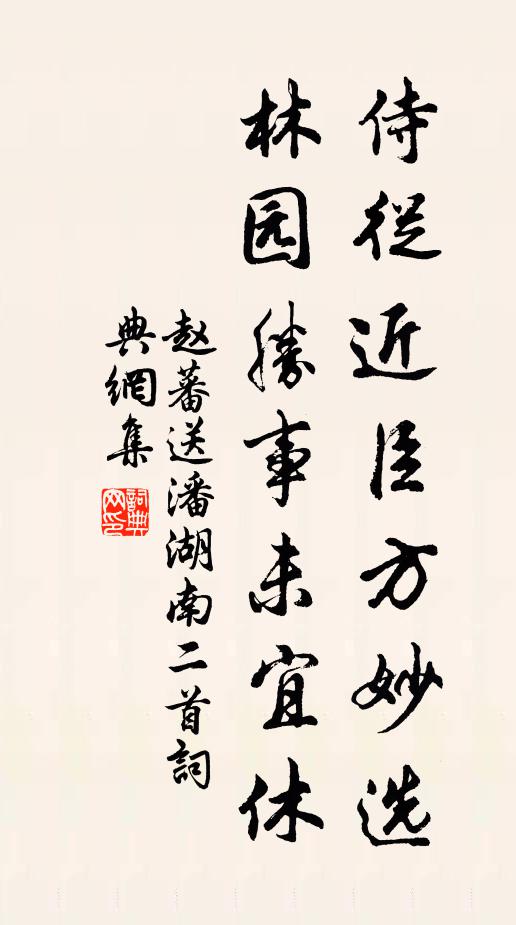 侍從近臣方妙选
林园勝事未宜休
赵蕃送潘湖南二首詞
典網集
詞典网印